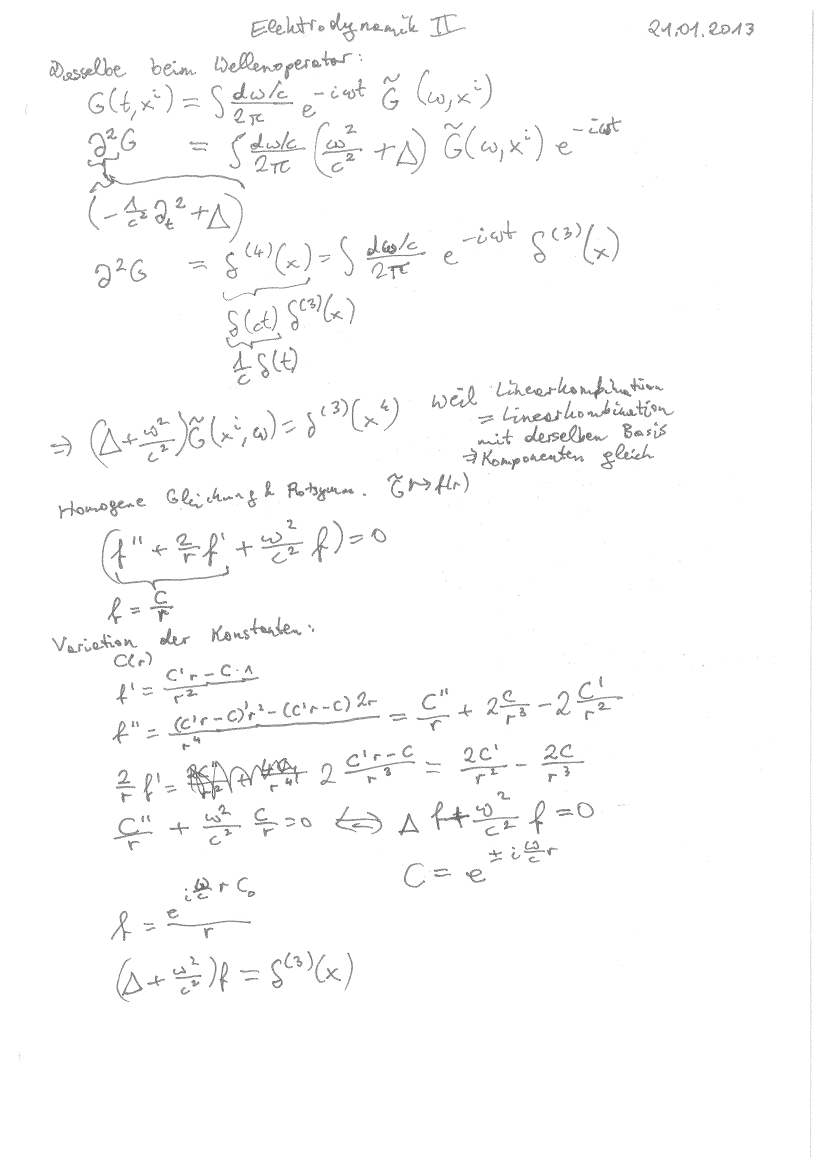 Elektrodynamik II 21.01.2013
Dasselbe beim Wellenoperator:
G(t,x^i) = ∫ dω/c / 2π e^{-iωt} G̃ (ω,x^i)
∂²G = ∫ dω/c / 2π (ω²/c² + Δ) G̃(ω,x^i) e^{-iωt}
(-1/c² ∂_t² + Δ)
∂²G = δ^{(4)}(x) = ∫ dω/c / 2π e^{-iωt} δ^{(3)}(x)
δ(ct) δ^{(3)}(x)
1/c δ(t)
⇒ (Δ + ω²/c²) G̃(x^i,ω) = δ^{(3)}(x^i) weil Linearkombination
= Linearkombination
mit derselben Basis
⇒ Komponenten gleich
Homogene Gleichung & Rotsymm. G̃ ↦ f(r)
(f'' + 2/r f' + ω²/c² f) = 0
f = C/r
Variation der Konstanten:
C(r)
f' = (C'r - C·1)/r²
f'' = ((C'r - C)'r² - (C'r - C) 2r)/r⁴ = C''/r + 2 C/r³ - 2 C'/r²
2/r f' = 2 (C'r - C)/r³ = 2C'/r² - 2C/r³
C''/r + ω²/c² C/r = 0 ⟺ Δ f + ω²/c² f = 0
C = e^{± i ω/c r}
f = e^{i ω/c r C₀}/r
(Δ + ω²/c²) f = δ^{(3)}(x)